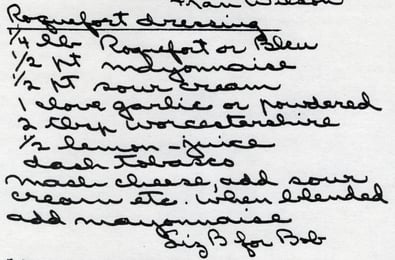 Wilson
Roquefort dressing
1/4 lb Roquefort or Bleu
1/2 pt mayonnaise
1/2 pt sour cream
1 clove garlic or powdered
2 tbsp worcestershire
1/2 lemon - juice
dash tobasco
mash cheese, add sour
cream etc. When blended
add mayonnaise
Liz B for Bob